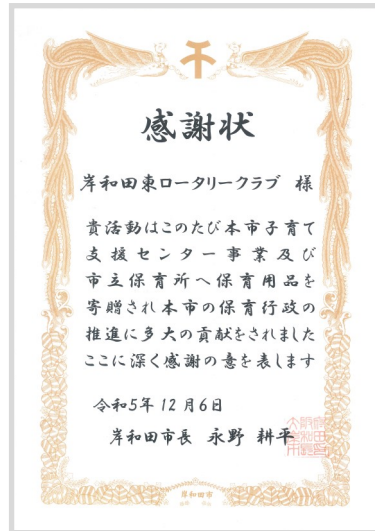 感謝状
岸和田東ロータリークラブ 様
貴活動はこのたび本市子育て
支援センター事業及び
市立保育所へ保育用品を
寄贈され本市の保育行政の
推進に多大の貢献をされました
ここに深く感謝の意を表します
令和5年12月6日
岸和田市長 永野 耕平
岸和田市